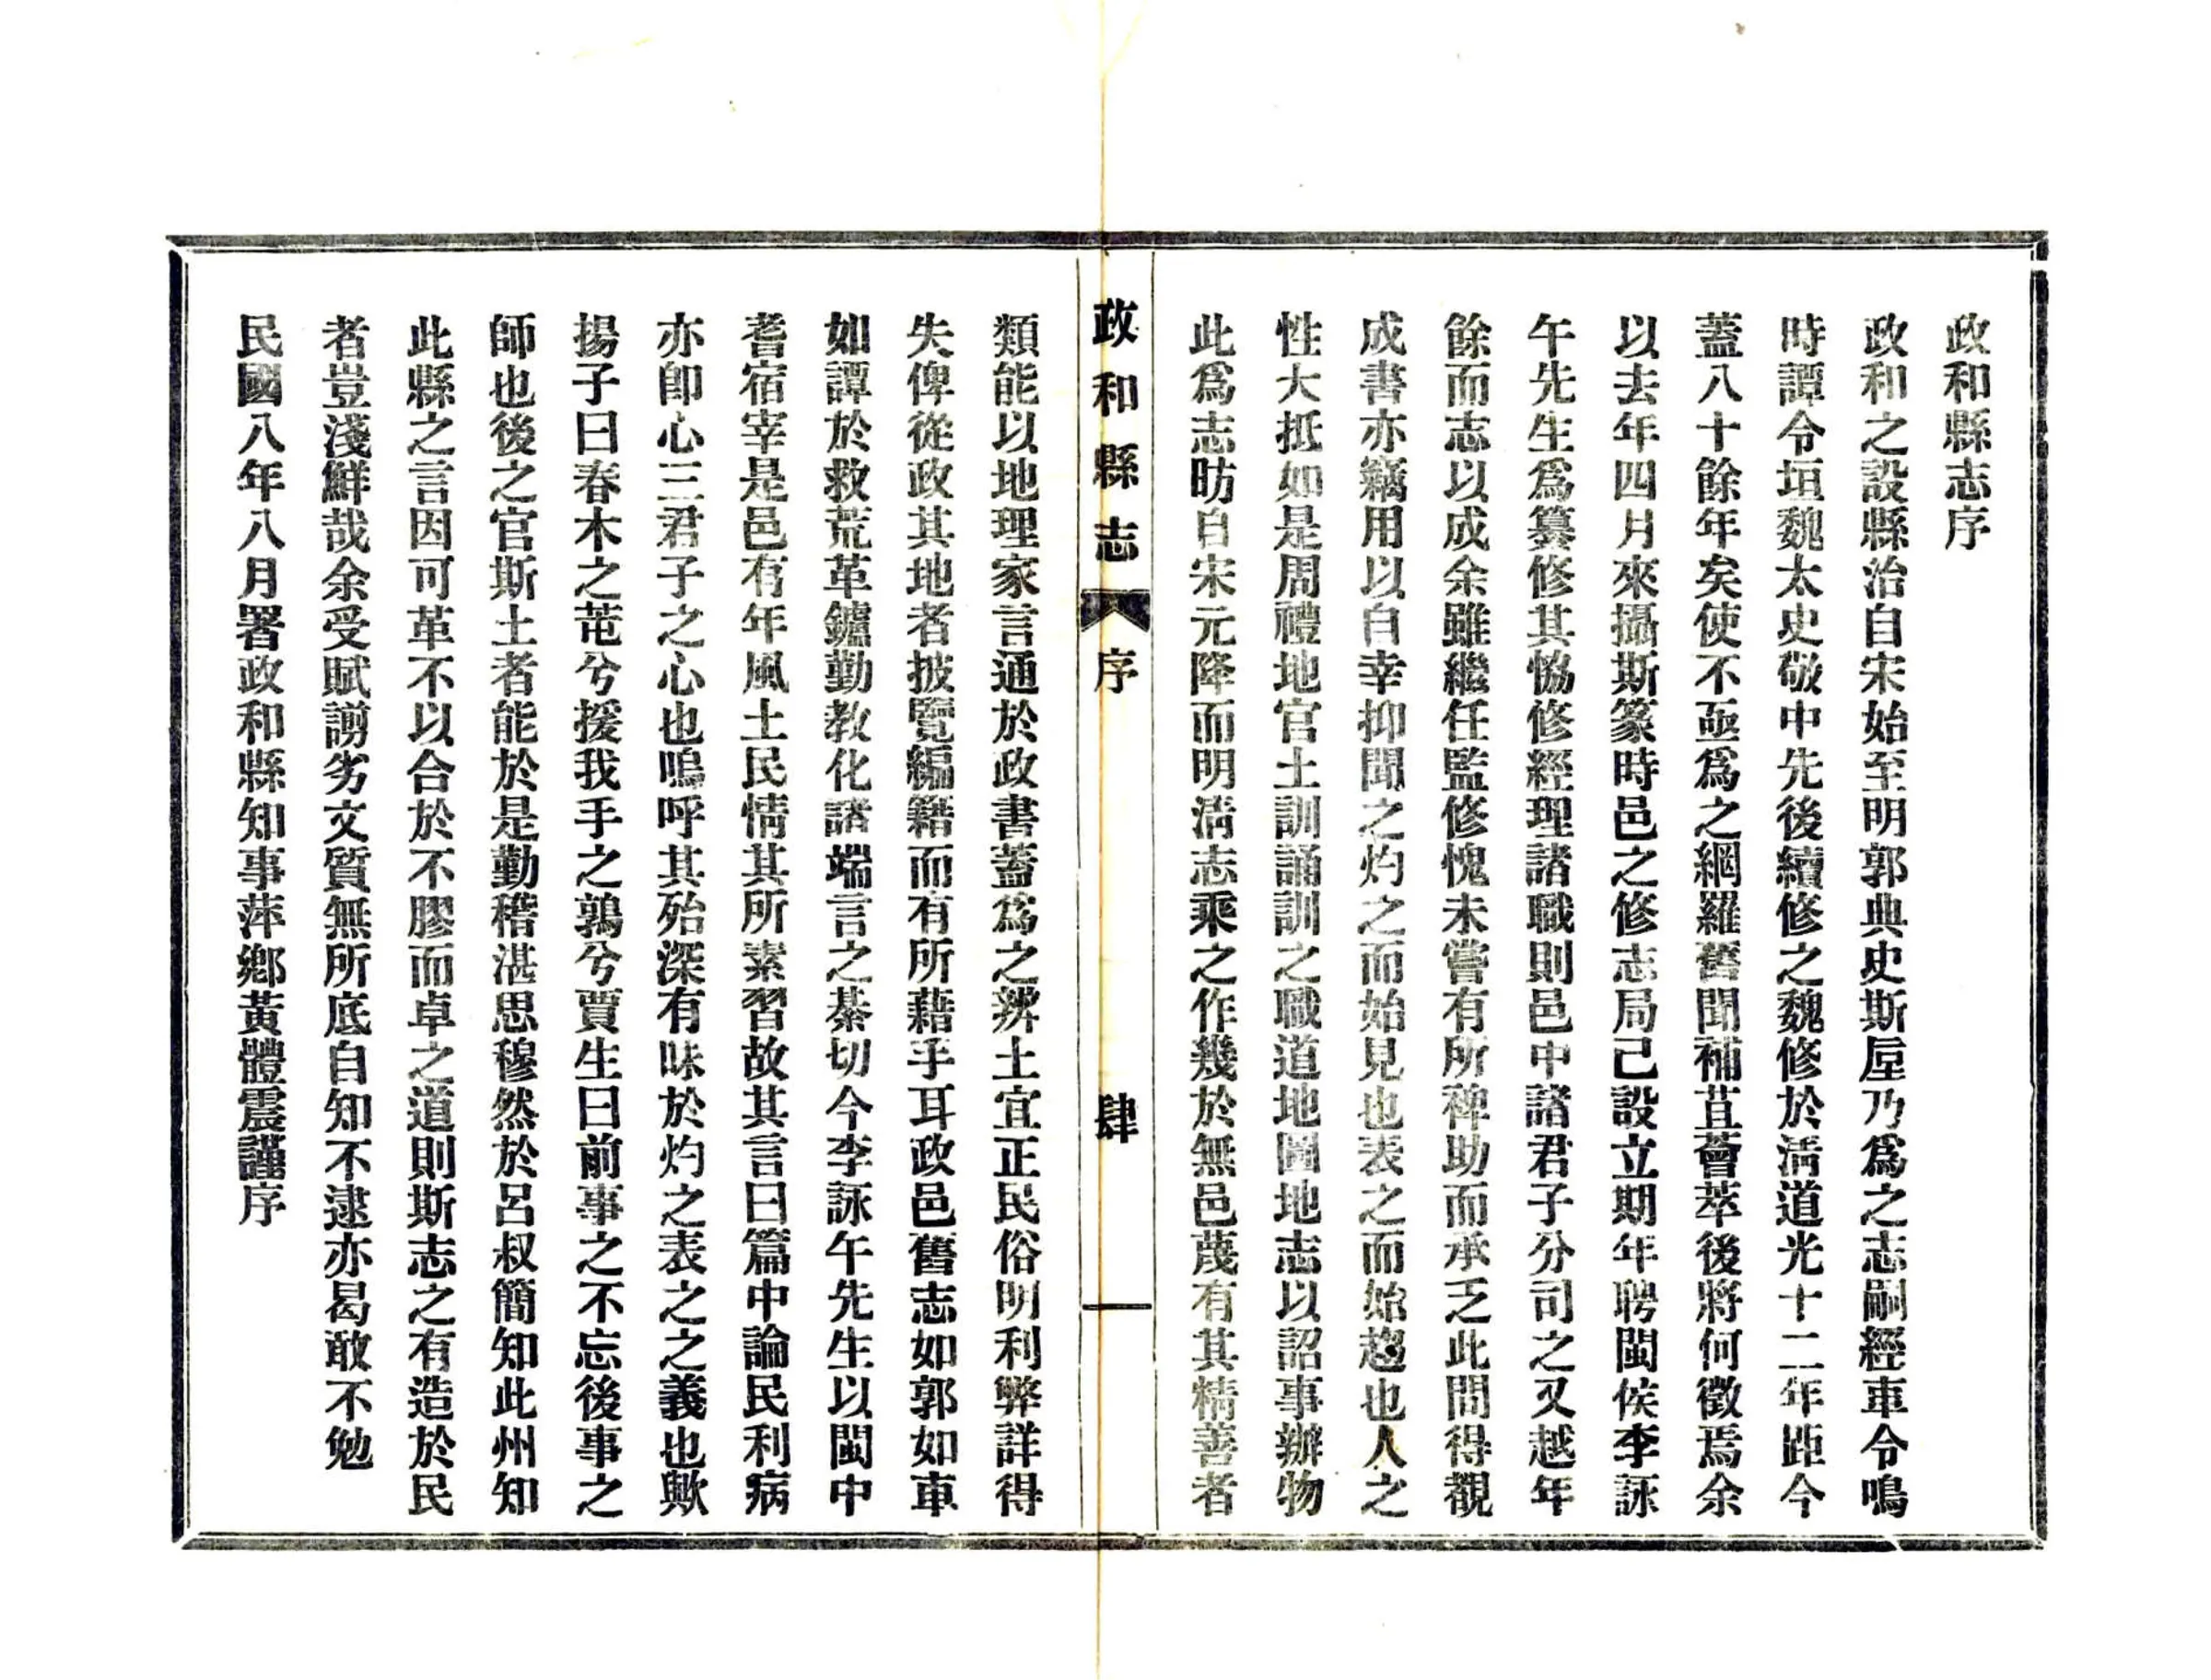 政和縣志序
政和之設縣治自宋始至明郭典史斯垕乃爲之志嗣經車令鳴
時譚令垣魏太史敬中先後續修之魏修於淸道光十二年距今
蓋八十餘年矣使不亟爲之網羅舊聞補苴薈萃後將何徵焉余
以去年四月來攝斯篆時邑之修志局已設立期年聘閩侯李詠
午先生爲纂修其恊修經理諸職則邑中諸君子分司之又越年
餘而志以成余雖繼任監修愧未嘗有所裨助而承乏此間得觀
成書亦竊用以自幸抑聞之灼之而始見也表之而始趨也人之
性大抵如是周禮地官土訓誦訓之職道地圖地志以詔事辦物
此爲志昉自宋元降而明淸志乘之作幾於無邑蔑有其精善者
政和縣志 序 肆
類能以地理家言通於政書蓋爲之辨土宜正民俗明利弊詳得
失俾從政其地者披覽編籍而有所藉手耳政邑舊志如郭如車
如譚於救荒革鑪勤教化諸端言之綦切今李詠午先生以閩中
耆宿宰是邑有年風土民情其所素習故其言曰篇中論民利病
亦卽心三君子之心也嗚呼其殆深有味於灼之表之之義也歟
揚子曰春木之芚兮援我手之鶉兮賈生曰前事之不忘後事之
師也後之官斯土者能於是勤稽湛思穆然於呂叔簡知此州知
此縣之言因可革不以合於不膠而卓之道則斯志之有造於民
者豈淺鮮哉余受賦謭劣文質無所底自知不逮亦曷敢不勉
民國八年八月署政和縣知事萍鄉黃體震謹序